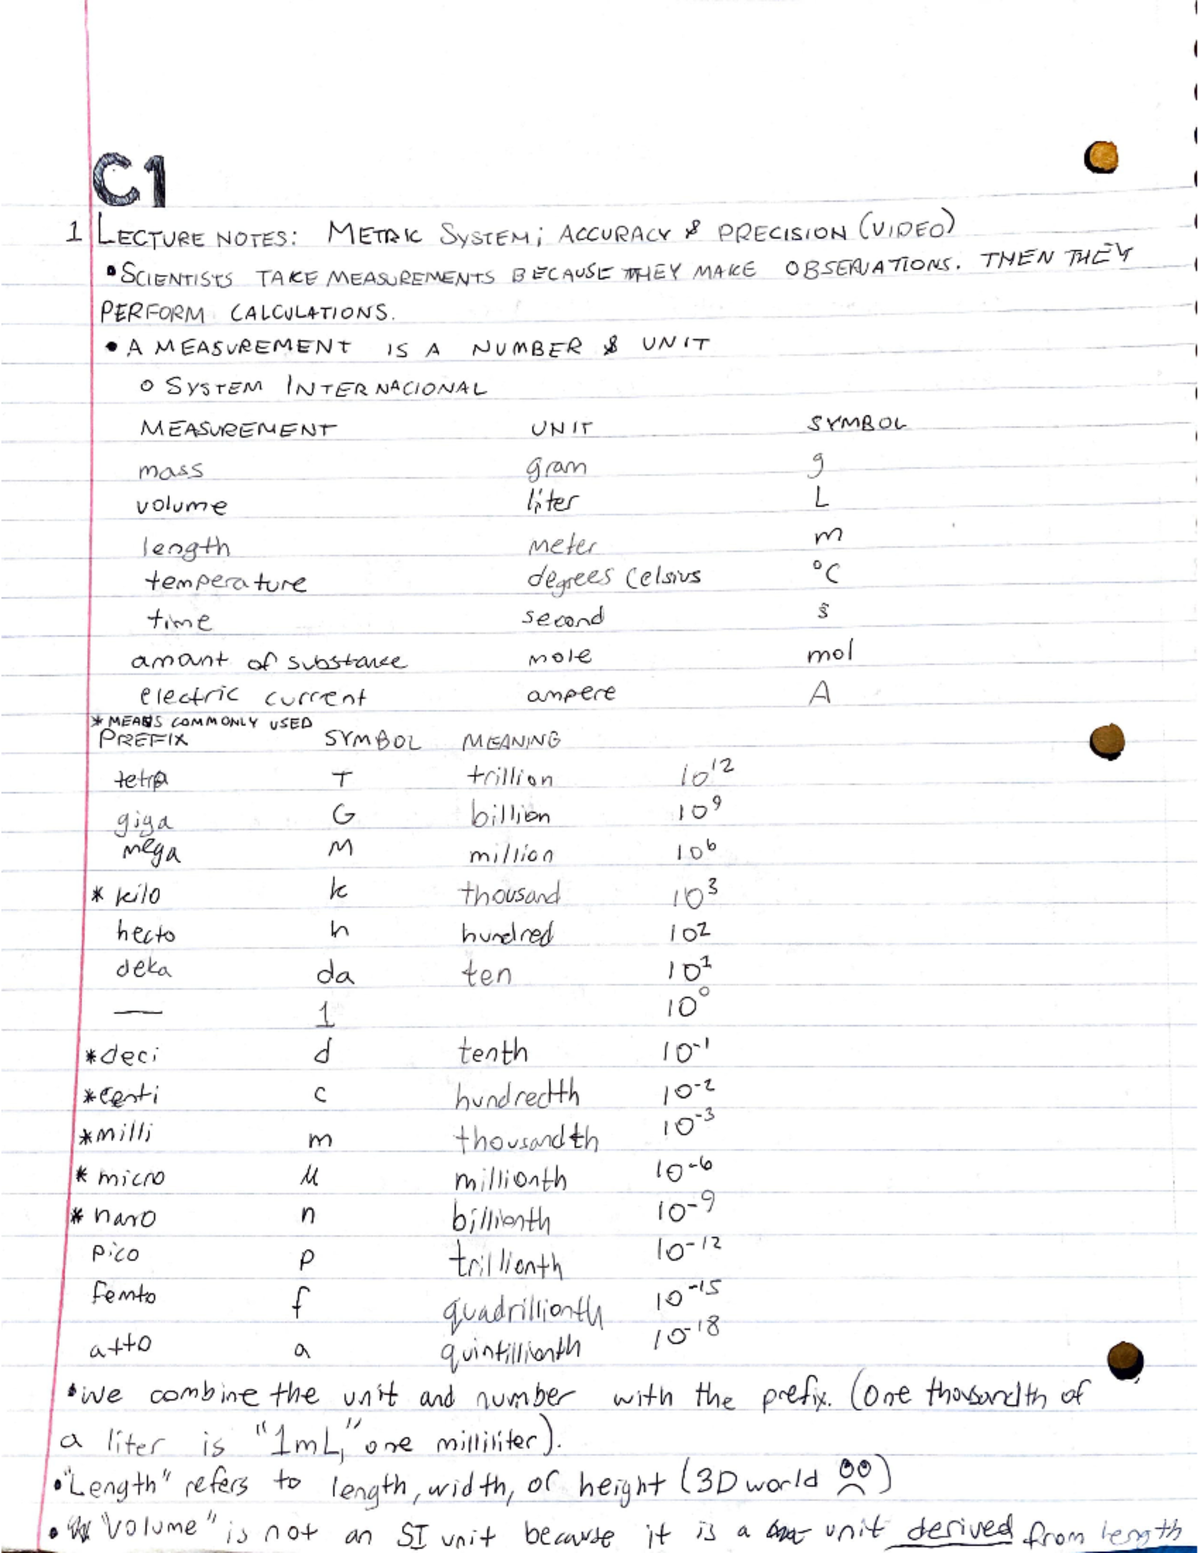 C1
1 LECTURE NOTES: METRIC SYSTEM; ACCURACY & PRECISION (VIDEO)
• SCIENTISTS TAKE MEASUREMENTS BECAUSE THEY MAKE OBSERVATIONS. THEN THEY
PERFORM CALCULATIONS.
• A MEASUREMENT IS A NUMBER & UNIT
○ SYSTEM INTERNACIONAL
MEASUREMENT UNIT SYMBOL
mass gram g
volume liter L
length meter m
temperature degrees Celsius °C
time second s
amount of substance mole mol
electric current ampere A
* MEANS COMMONLY USED
PREFIX SYMBOL MEANING
tetra T trillion 10¹²
giga G billion 10⁹
mega M million 10⁶
* kilo k thousand 10³
hecto h hundred 10²
deka da ten 10¹
— 1 10⁰
*deci d tenth 10⁻¹
*centi c hundredth 10⁻²
*milli m thousandth 10⁻³
* micro μ millionth 10⁻⁶
* nano n billionth 10⁻⁹
pico p trillionth 10⁻¹²
femto f quadrillionth 10⁻¹⁵
atto a quintillionth 10⁻¹⁸
• we combine the unit and number with the prefix. (One thousandth of
a liter is "1mL," one milliliter).
• "Length" refers to length, width, or height (3D world)
• "Volume" is not an SI unit because it is a unit derived from length